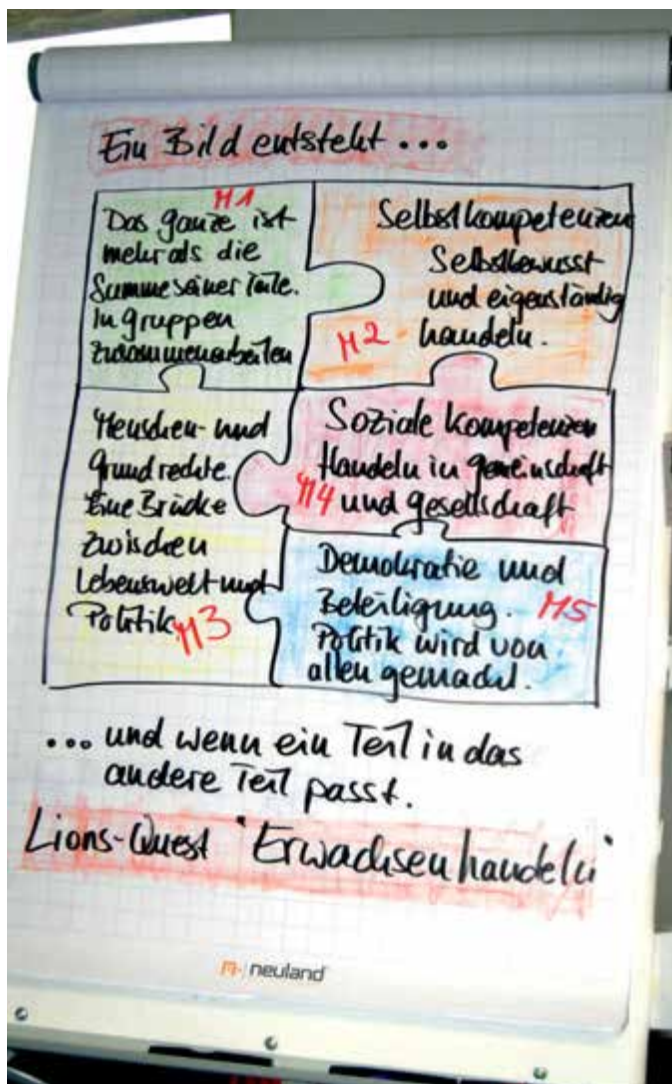 Ein Bild entsteht ...
M1
Das ganze ist
mehr als die
Summe seiner Teile.
In gruppen
zusammenarbeiten
Selbstkompetenzen
Selbstbewusst
und eigenständig
handeln.
M2
Menschen- und
grundrechte.
Eine Brücke
zwischen
Lebenswelt und
Politik
M3
Soziale Kompetenzen
Handeln in gemeinschaft
M4 und gesellschaft
Demokratie und
Beteiligung. M5
Politik wird von
allen gemacht.
... und wenn ein Teil in das
andere Teil passt.
Lions-Quest "Erwachsen handeln"
neuland